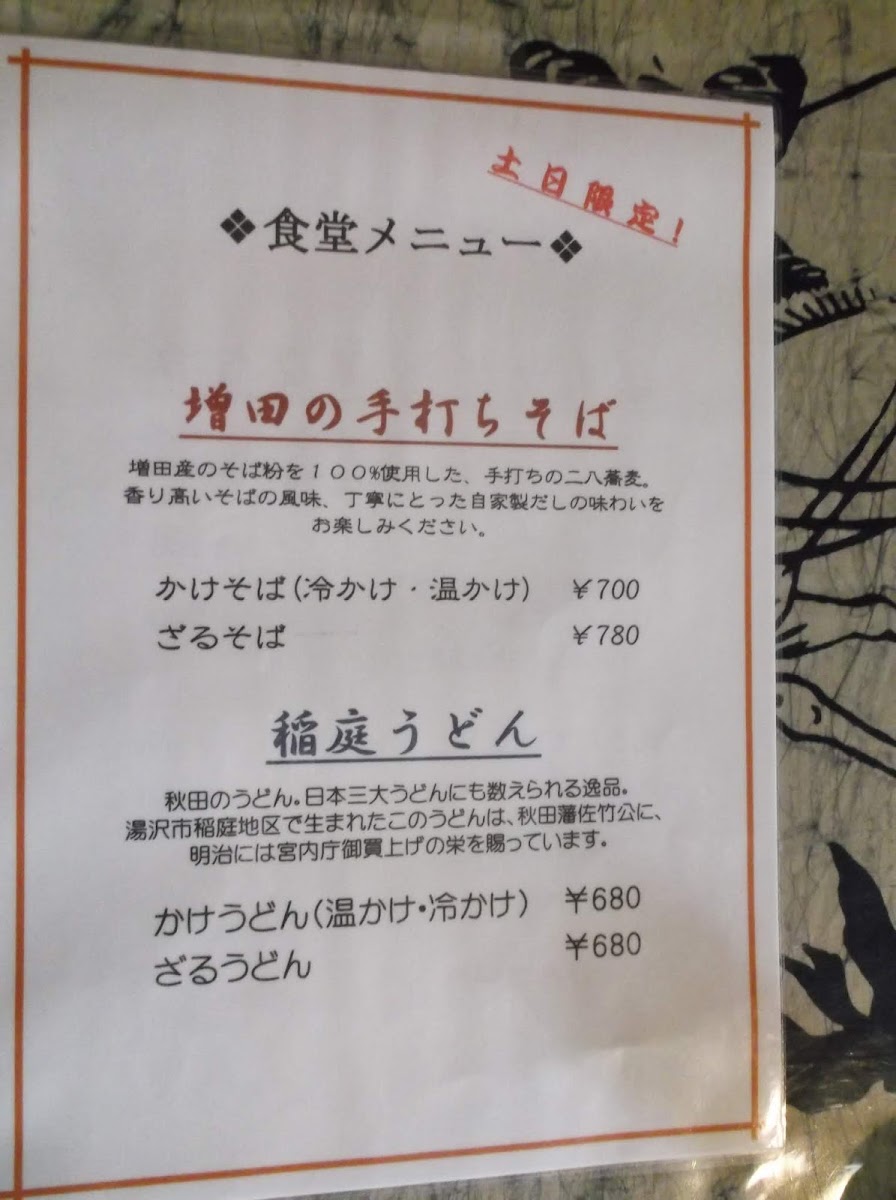 土日限定！
❖食堂メニュー❖
増田の手打ちそば
増田産のそば粉を１００％使用した、手打ちの二八蕎麦。
香り高いそばの風味、丁寧にとった自家製だしの味わいを
お楽しみください。
かけそば(冷かけ・温かけ) ￥700
ざるそば ￥780
稲庭うどん
秋田のうどん。日本三大うどんにも数えられる逸品。
湯沢市稲庭地区で生まれたこのうどんは、秋田藩佐竹公に、
明治には宮内庁御買上げの栄を賜っています。
かけうどん(温かけ・冷かけ) ￥680
ざるうどん ￥680